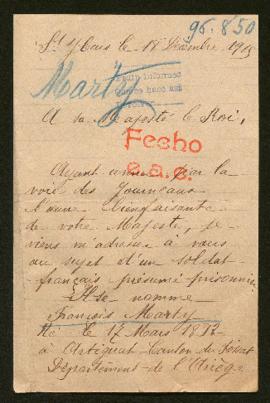 96.850
le 18 Décembre 1915
Marty
A Sa Majesté le Roi,
Fecho
Ayant connu par la
voie des Journeaux
l'œuvre bienfaisante
de votre Majesté, je
viens m'adresser à vous
au sujet d'un soldat
français présumé prisonnier
Il se nomme
François Marty
Né le 17 Mars 1892
à Artigat Canton du Fossat
Département de l'Ariège